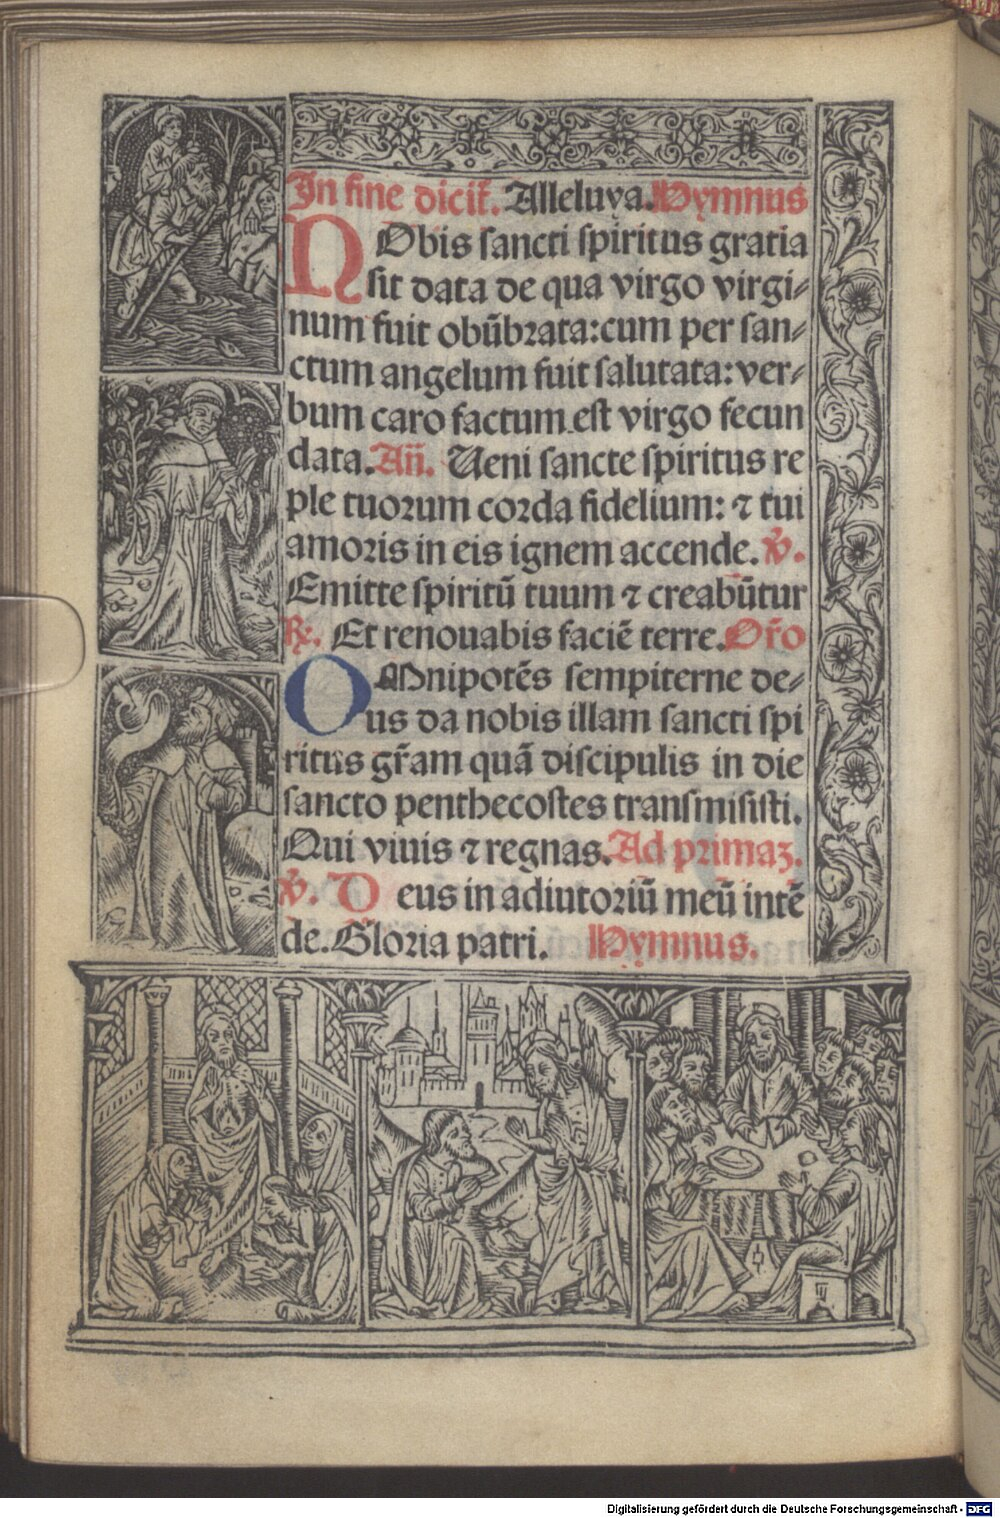 In fine dicit᷑. Alleluya. Hymnus
NObis sancti spiritus gratia
sit data de qua virgo virgi⸗
num fuit obũbrata: cum per san⸗
ctum angelum fuit salutata: ver⸗
bum caro factum est virgo fecun
data. Añ. Ueni sancte spiritus re
ple tuorum corda fidelium: ⁊ tui
amoris in eis ignem accende. ℣.
Emitte spiritũ tuum ⁊ creabũtur
℞. Et renouabis faciẽ terre. Or̃o
OMnipotẽs sempiterne de⸗
us da nobis illam sancti spi
ritus gr̃am quã discipulis in die
sancto penthecostes transmisisti.
Qui viuis ⁊ regnas. Ad primaꝫ.
℣. Deus in adiutoriũ meũ intẽ
de. Gloria patri. Hymnus.
Digitalisierung gefördert durch die Deutsche Forschungsgemeinschaft - DFG